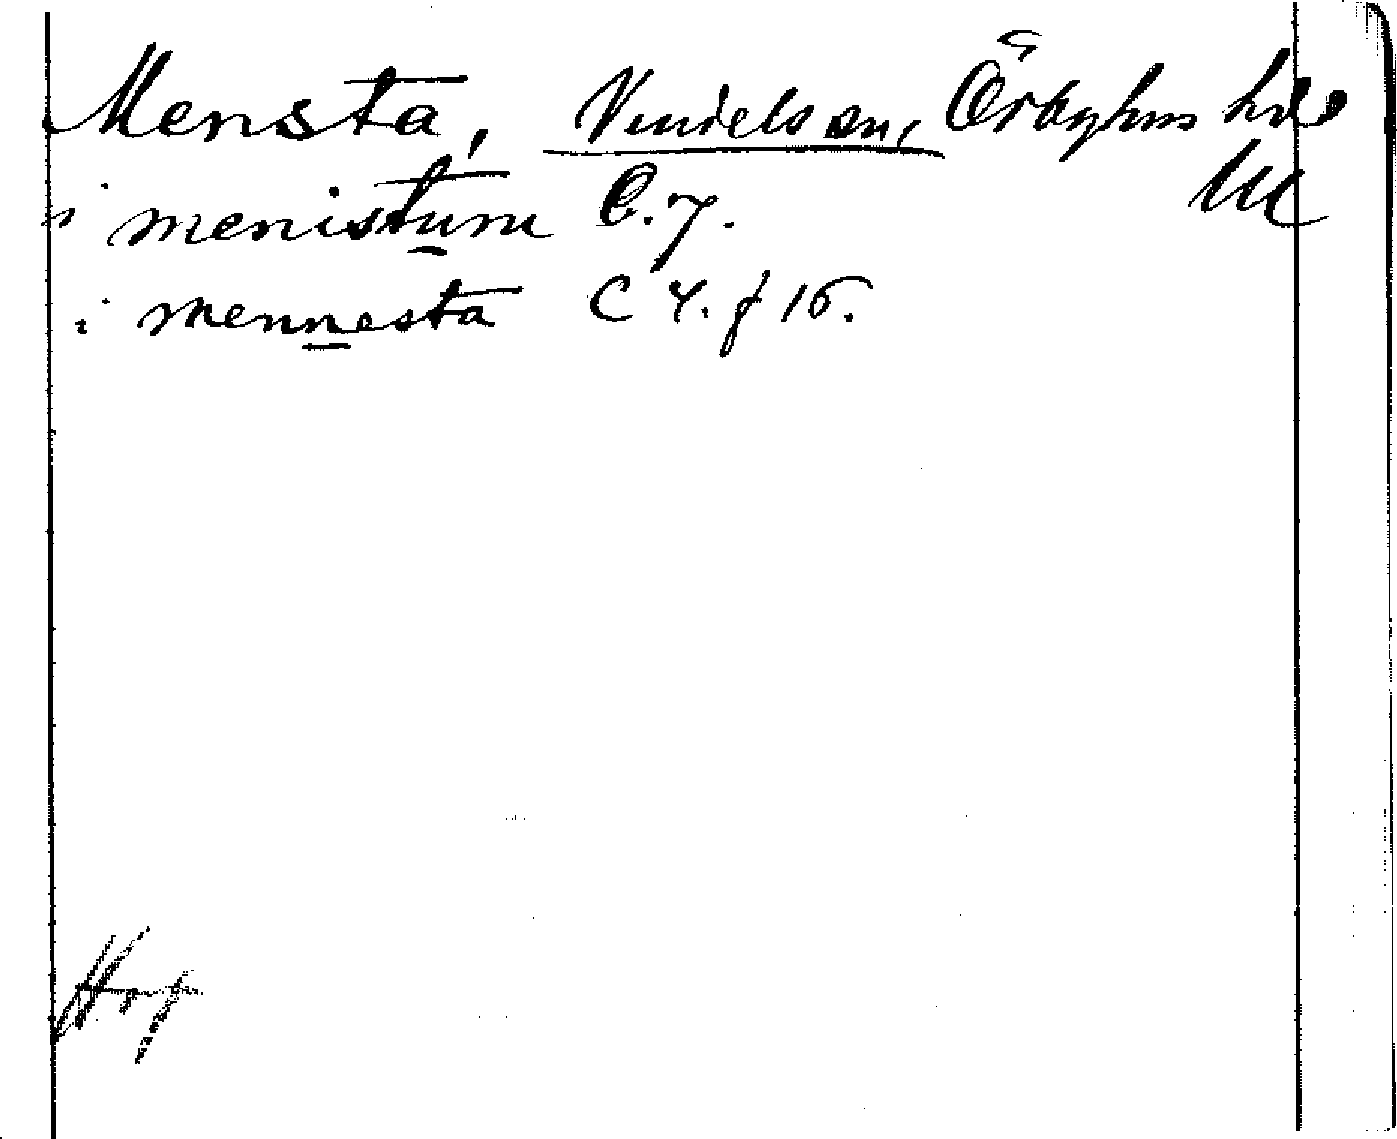 Mensta, Vendels sn, Örbyhus hd
U
i menistum C. 7.
i mennesta C 4. f 16.